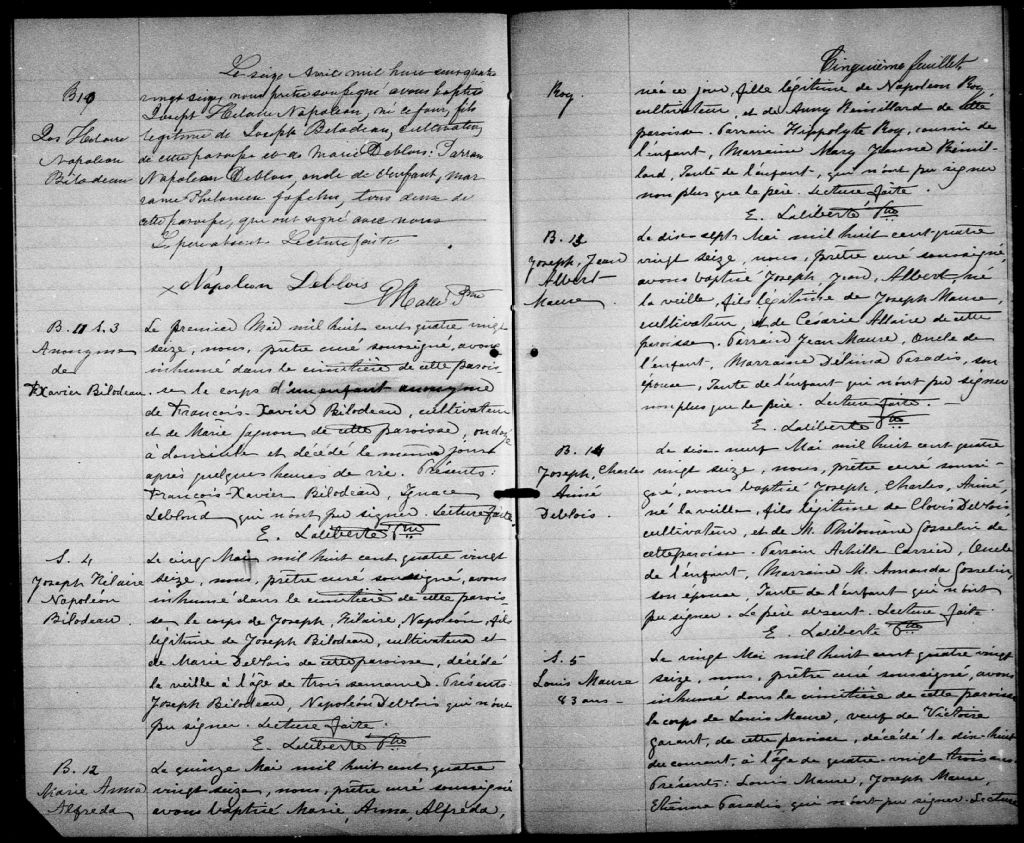 B10
Jos Hilaire
Napoléon
Bilodeau
Le seize Avril mil huit cent quatre
vingt seize, nous prêtre soussigné avons baptisé
Joseph Hilaire Napoléon, né ce jour, fils
légitime de Joseph Bilodeau, cultivateur
de cette paroisse et de Marie Deblois. Parrain
Napoléon Deblois, oncle de l'enfant, mar
raine Philomène tous deux de
cette paroisse, qui ont signé avec nous
Le père absent. Lecture faite
x Napoléon Deblois
Ptre
B. 11 S. 3
Anonyme
de
Xavier Bilodeau
Le premier Mai mil huit cent quatre vingt
seize, nous, prêtre curé soussigné, avons
inhumé dans le cimetière de cette parois-
se le corps d'un enfant anonyme
de François-Xavier Bilodeau, cultivateur
et de Marie Gagnon de cette paroisse, ondoyé
à domicile et décédé le même jour
après quelques heures de vie. Présents:
François-Xavier Bilodeau, Ignace
Leblond qui n'ont pu signer. Lecture faite.
E. Laliberté Ptre
S. 4
Joseph Hilaire
Napoléon
Bilodeau.
Le cinq Mai mil huit cent quatre vingt
seize, nous, prêtre curé soussigné, avons
inhumé dans le cimetière de cette parois-
se le corps de Joseph, Hilaire, Napoléon, fils
légitime de Joseph Bilodeau, cultivateur et
de Marie Deblois de cette paroisse, décédé
la veille à l'âge de trois semaines. Présents
Joseph Bilodeau, Napoléon Deblois qui n'ont
pu signer. Lecture faite.
E. Laliberté Ptre
B. 12
Marie Anna
Alfreda
Le quinze Mai mil huit cent quatre
vingt seize, nous, prêtre curé soussigné
avons baptisé Marie, Anna, Alfreda,
Cinquième feuillet
Roy.
née ce jour, fille légitime de Napoléon Roy,
cultivateur, et de Anny Rémillard de cette
paroisse. Parrain Hippolyte Roy, cousin de
l'enfant, Marraine Mary Jeanne Rémil-
lard, Tante de l'enfant, qui n'ont pu signer
non plus que le père. Lecture faite.
E. Laliberté Ptre
B. 13
Joseph, Jean
Albert
Maure
Le dix-sept Mai mil huit cent quatre
vingt seize, nous, prêtre curé soussigné,
avons baptisé Joseph, Jean, Albert, né
la veille, fils légitime de Joseph Maure,
cultivateur, et de Césarie Allaire de cette
paroisse. Parrain Jean Maure, Oncle de
l'enfant, Marraine Délima Paradis, son
épouse, Tante de l'enfant qui n'ont pu signer
non plus que le père. Lecture faite. -
E. Laliberté Ptre
B. 14
Joseph, Charles
Aimé
Deblois.
Le dix-neuf Mai mil huit cent quatre
vingt seize, nous, prêtre curé soussi-
gné, avons baptisé Joseph, Charles, Aimé,
né la veille, fils légitime de Clovis Deblois,
cultivateur, et de M. Philomène Gosselin de
cette paroisse. Parrain Achille Oncle
de l'enfant, Marraine M. Amanda Gosselin,
son épouse, Tante de l'enfant qui n'ont
pu signer. Le père absent. Lecture faite.
E. Laliberté Ptre
S. 5
Louis Maure
83 ans -
Le vingt Mai mil huit cent quatre vingt
seize, nous, prêtre curé soussigné, avons
inhumé dans le cimetière de cette paroisse
le corps de Louis Maure, veuf de Victoire
de cette paroisse, décédé le dix-huit
du courant, à l'âge de quatre-vingt trois ans.
Présents: Louis Maure, Joseph Maure,
Etienne Paradis qui n'ont pu signer. Lecture